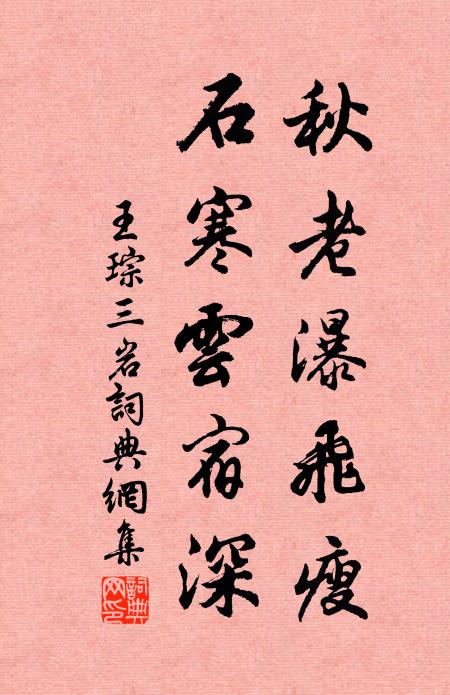 秋老瀑飛瘦
石寒雲宿深
王琮三岩詞典網集
詞典網印